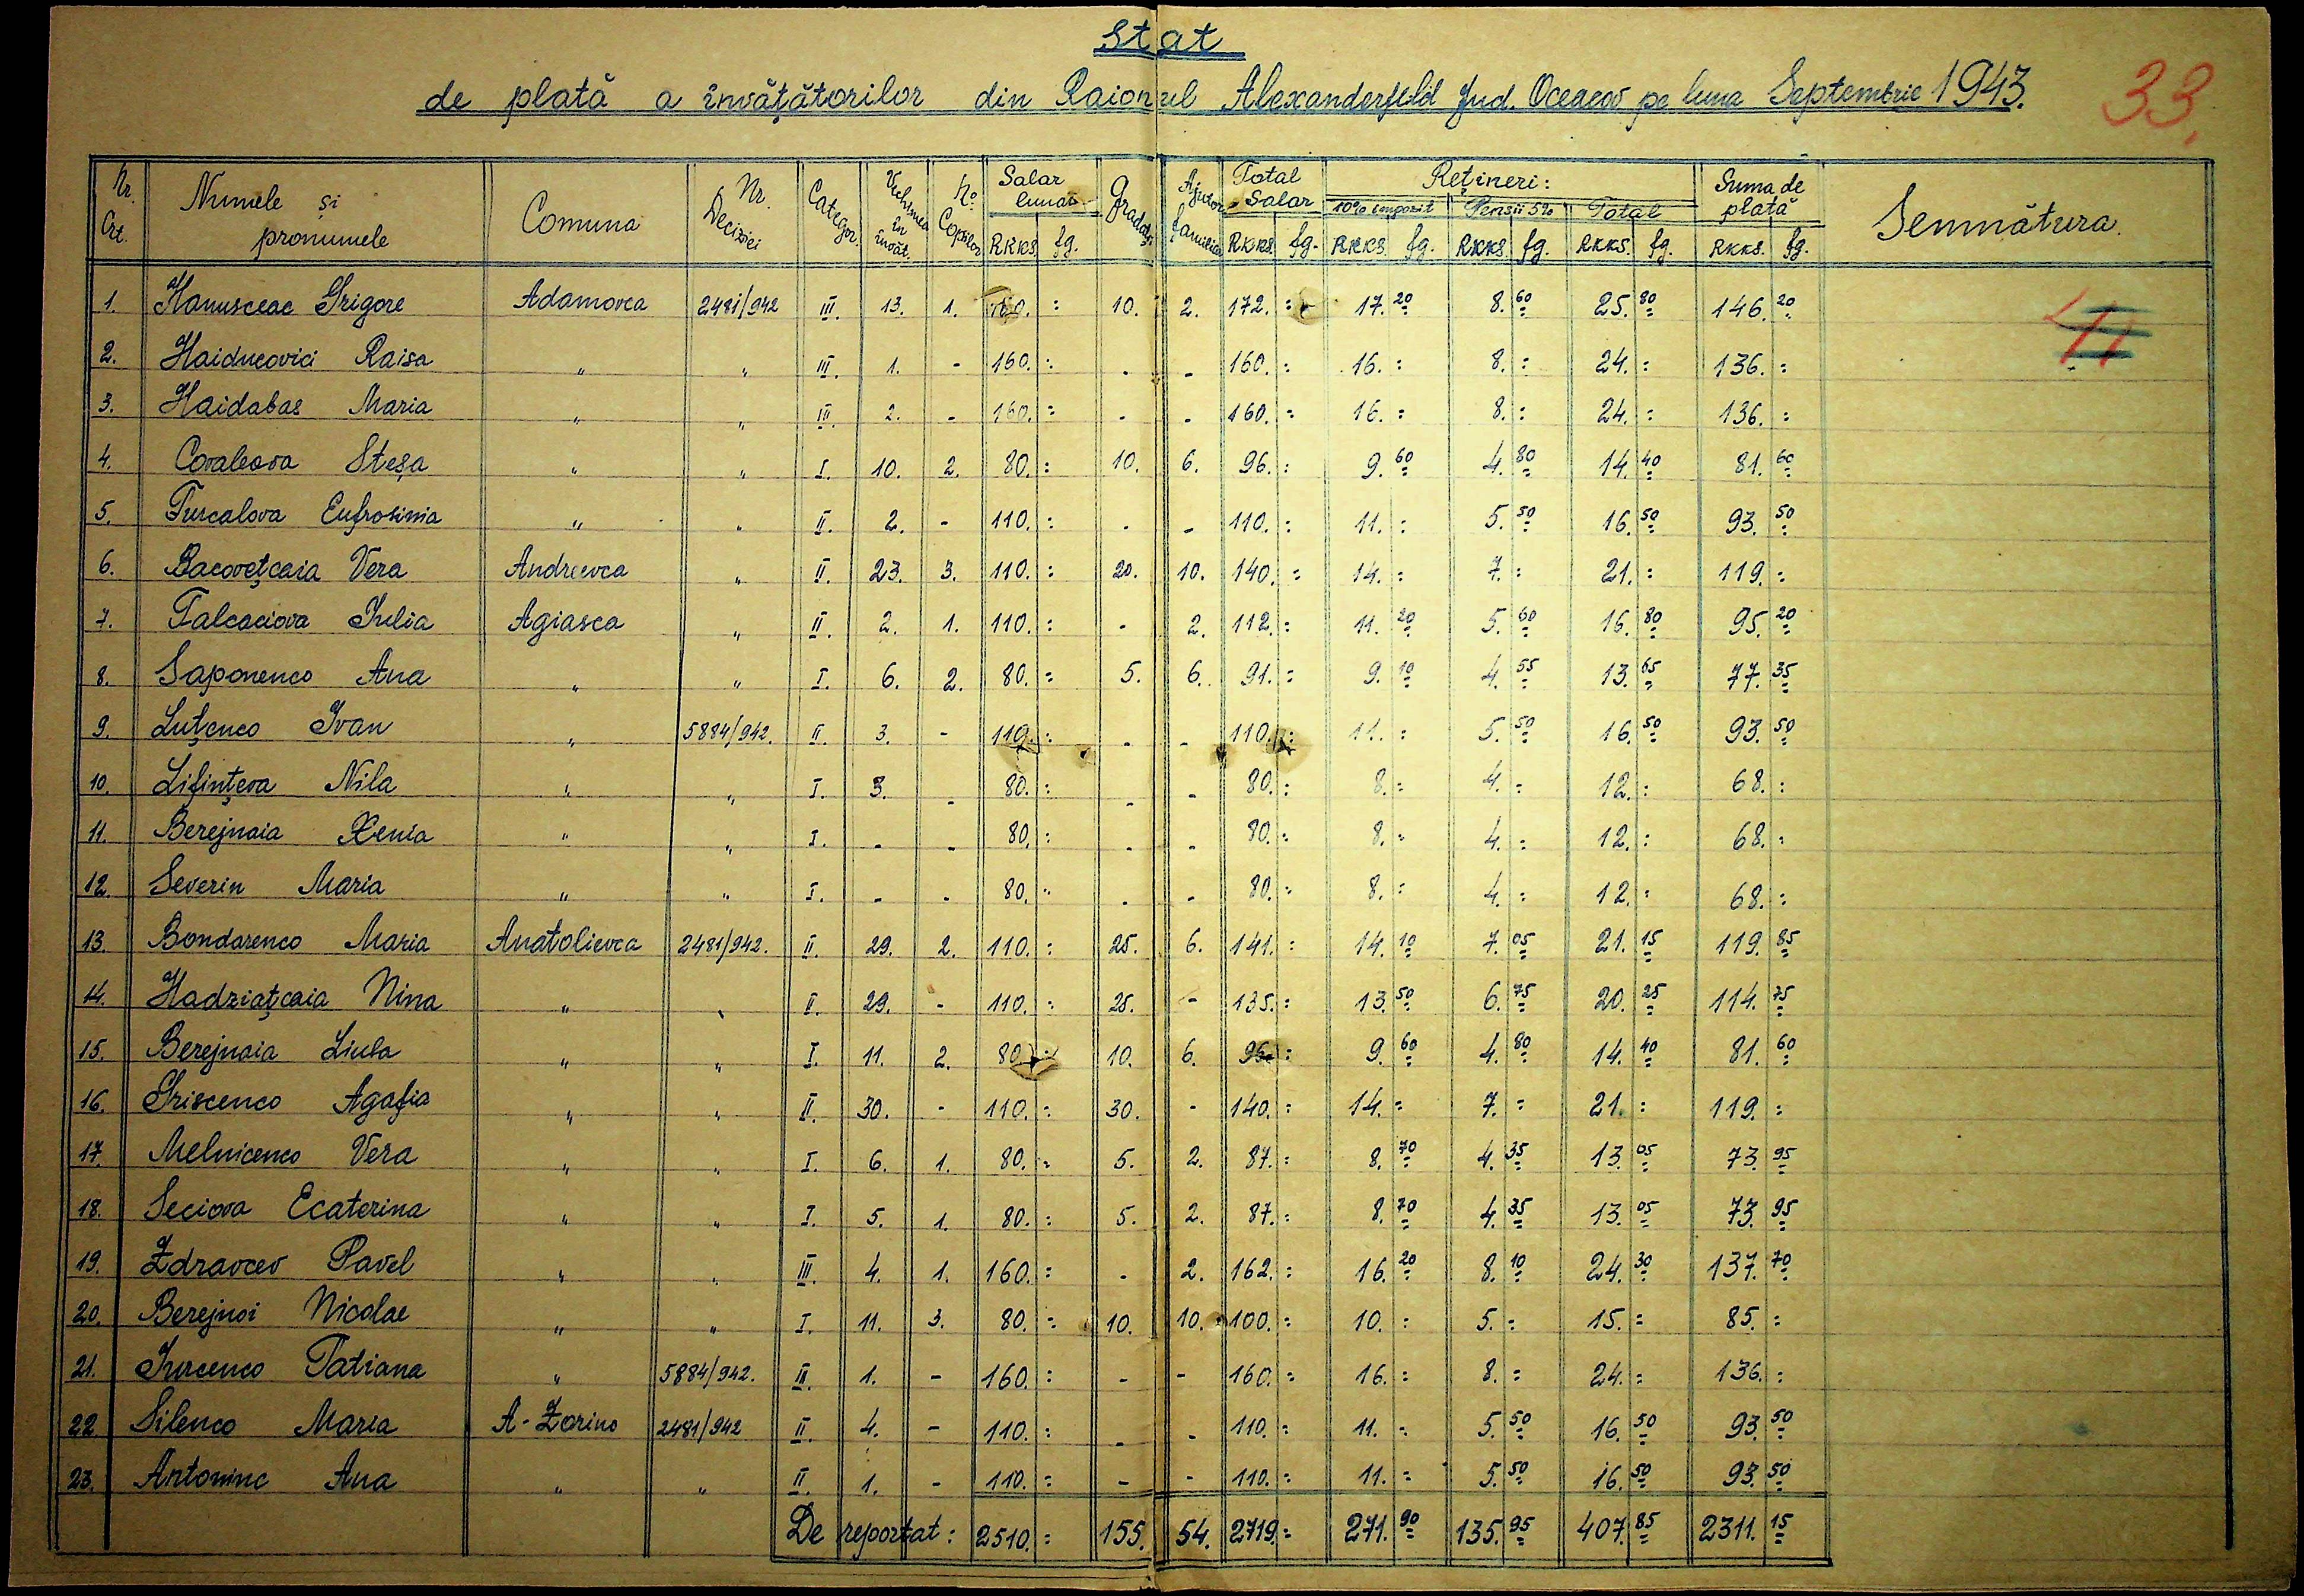 Stat
de plată a învăţătorilor din Raionul Alexanderfeld Jud. Oceacov pe luna Septembrie 1943.
33.
Nr. Crt. Numele şi pronumele Comuna Nr. Deciziei Categor. Vechimea în învăţ. No. Copiilor Salar lunar RKKS. fg. Gradaţii Ajutor familiar Total Salar RKKS. fg. Reţineri: 10% impozit RKKS. fg. Pensii 5% RKKS. fg. Total RKKS. fg. Suma de plată RKKS. fg. Semnătura.
1. Hanusceac Grigore Adamovca 2481/942 III. 13. 1. 160. : 10. 2. 172. : 17. 20 8. 60 25. 80 146. 20
2. Haiducovici Raisa " " III. 1. - 160. : - - 160. : 16. : 8. : 24. : 136. :
3. Haidabas Maria " " III. 2. - 160. : - - 160. : 16. : 8. : 24. : 136. :
4. Covaleova Steşa " " I. 10. 2. 80. : 10. 6. 96. : 9. 60 4. 80 14. 40 81. 60
5. Turcalova Eufrosinia " " II. 2. - 110. : - - 110. : 11. : 5. 50 16. 50 93. 50
6. Bacoveţcaia Vera Andreevca " II. 23. 3. 110. : 20. 10. 140. : 14. : 7. : 21. : 119. :
7. Talcaciova Iulia Agiasca " II. 2. 1. 110. : - 2. 112. : 11. 20 5. 60 16. 80 95. 20
8. Saponenco Ana " " I. 6. 2. 80. : 5. 6. 91. : 9. 10 4. 55 13. 65 77. 35
9. Luţenco Ivan " 5884/942. II. 3. - 110. : - - 110. : 11. : 5. 50 16. 50 93. 50
10. Lifinţeva Nila " " I. 3. - 80. : - - 80. : 8. : 4. : 12. : 68. :
11. Berejnaia Xenia " " I. - - 80. : - - 80. : 8. : 4. : 12. : 68. :
12. Severin Maria " " I. - - 80. : - - 80. : 8. : 4. : 12. : 68. :
13. Bondarenco Maria Anatolievca 2481/942. II. 29. 2. 110. : 25. 6. 141. : 14. 10 7. 05 21. 15 119. 85
14. Hadziaţcaia Nina " " II. 29. - 110. : 25. - 135. : 13. 50 6. 75 20. 25 114. 75
15. Berejnaia Liuba " " I. 11. 2. 80. : 10. 6. 96. : 9. 60 4. 80 14. 40 81. 60
16. Griscenco Agafia " " II. 30. - 110. : 30. - 140. : 14. : 7. : 21. : 119. :
17. Melnicenco Vera " " I. 6. 1. 80. : 5. 2. 87. : 8. 70 4. 35 13. 05 73. 95
18. Seciova Ecaterina " " I. 5. 1. 80. : 5. 2. 87. : 8. 70 4. 35 13. 05 73. 95
19. Zdravcev Pavel " " III. 4. 1. 160. : - 2. 162. : 16. 20 8. 10 24. 30 137. 70
20. Berejnoi Nicolae " " I. 11. 3. 80. : 10. 10. 100. : 10. : 5. : 15. : 85. :
21. Iurcenco Tatiana " 5884/942. III. 1. - 160. : - - 160. : 16. : 8. : 24. : 136. :
22 Silenco Maria A-Zorino 2481/942 II. 4. - 110. : - - 110. : 11. : 5. 50 16. 50 93. 50
23. Antoninc Ana " " II. 1. - 110. : - - 110. : 11. : 5. 50 16. 50 93. 50
De reportat: 2510. : 155. 54. 2719. : 271. 90 135. 95 407. 85 2311. 15